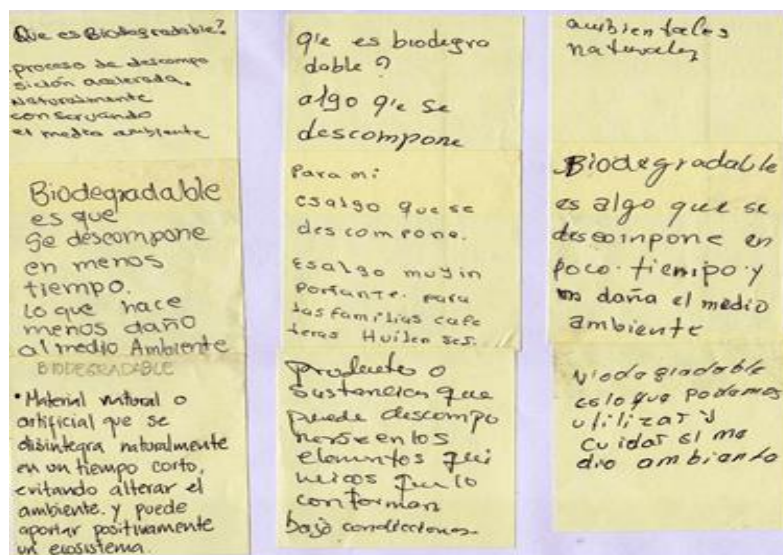 Que es Biodegradable?
proceso de descompo
sición acelerada.
Naturalmente
conservando
el medio ambiente
Biodegradable
es que
se descompone
en menos
tiempo.
lo que hace
menos daño
al medio Ambiente
BIODEGRADABLE
• Material natural o
artificial que se
disintegra naturalmente
en un tiempo corto,
evitando alterar el
ambiente. y puede
aportar positivamente
un ecosistema.
q'e es biodegra
dable?
algo q'e se
descompone
Para mi
es algo que se
descompone.
Es algo muy in
portante. para
las familias cafe
teras Huilenses.
productos o
sustancias que
puede descompo
nerse en los
elementos quí
micos que lo
conforman
bajo condiciones
ambientales
naturales
Biodegradable
es algo que se
descompone en
poco tiempo y
daña el medio
ambiente
Viodegradable
es lo que podemos
utilizar y
cuidar el me
dio ambiente